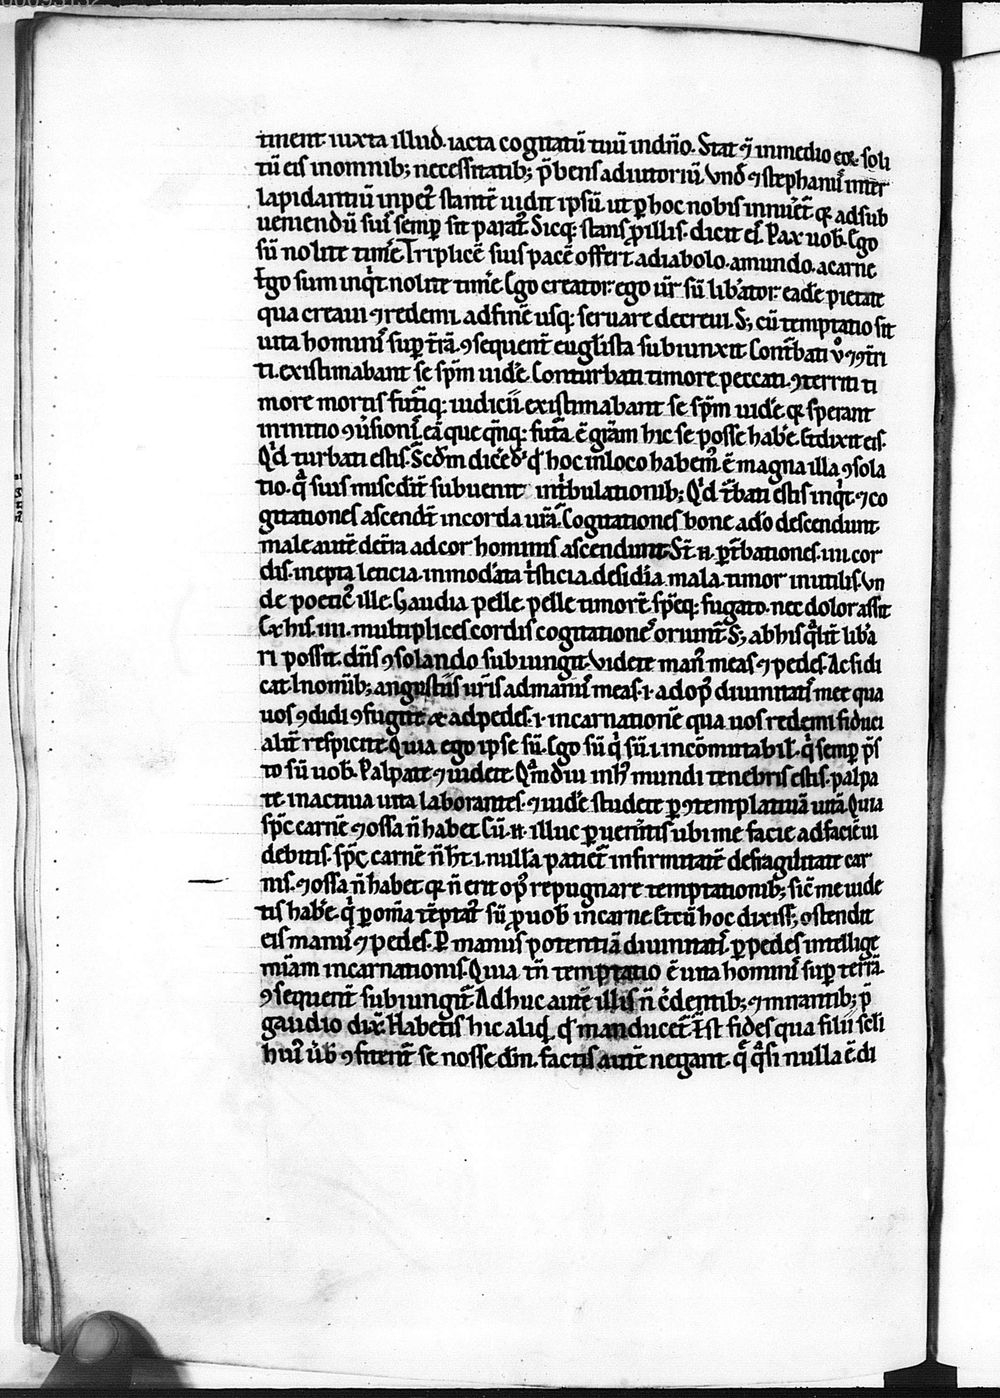 tinent iuxta illud. iacta cogitatū tuū indño. Stat ⁊ inmedio eoꝝ. soli
tū eis inomnib; necessitatib; p̄bens adiutoriū. Vnđ ⁊ stephanꝰ inter
lapidantiū inpet᷒ stantē uidit ipsū. ut ꝑ hoc nobis innuet᷒ qꝫ ad sub
ueniendū suis semꝑ sit parat᷒. Sicqꝫ stans ꝓ illis. dicit eis. Pax uob̄. Ego
sū nolite tim̄e. Triplicē suis pacē offert adiabolo. amundo. acarne
Ego sum inqͥt. nolite tim̄e. Ego creator. ego ur̄ sū lib̾ator. eadē pietate
qua creaui ⁊ redemi. adfinē usqꝫ seruare decreui. S; cū temptatio sit
uita hominis suꝑ tr̄ā. ꝯsequent̾ eugl̄ista subiunxit. Cont̾bati u̾o ⁊ ꝯt̾ri
ti. existimabant se sp̄m uid̾e. Conturbati timore peccati. ꝯterriti ti
more mortis futuriqꝫ iudicii. existimabant se sp̄m uid̾e. qꝫ sperant
ininitio ꝯu̾sionis. eā que qn̄qꝫ futa ē gr̄am hic se posse hab̾e. Et dixit eis.
Qͥd turbati estis. Scđm dic̄e
tio. qͣ suis misc̾dit̾ subuenit intͥbulationib; Qͥd t̾bati estis inqͥt. ⁊ co
gitationes ascendt̄ incorda ur̄a. Cogitationes bone ado descendunt
male aut̄ de t̾ra ad cor hominis ascendunt. St̄ .n. ꝑt̾bationes .iiii. cor
dis. inepta leticia. inmod̾ata tͥsticia. desid̾ia mala. timor inutilis. Vn
de poetic̄ ille. Gaudia pelle. pelle timorē. sp̄eqꝫ fugato. nec dolor assit
Ex his .iiii. multiplices cordis cogitationes oriunt᷒. S; ab his qͥlit̾ lib̾a
ri possit. dn̄s ꝯsolando subiungit. Videte manꝰ meas. ⁊ pedes. Ac si di
cat. Inomīb; angustiis ur̄is ad manꝰ meas .i. ad opꝰ diuinitatis mee qua
uos ꝯdidi ꝯfugite ad pedes .i. incarnationē qua uos redemi fiduci
alit̾ respicite. Quia ego ipse sū. Ego sū qͥ sū .i. incōmutabil̾. qͥ semꝑ p̄s
to sū uob̄. Palpate ⁊ uidete. Qͣmdiu in hꝰ mundi tenebris estis. palpa
te inactiua uita laborantes. ⁊ uid̾e studete ꝑ ꝯtemplatiuā uitā. Quia
sp̄c carnē ⁊ ossa n̄ habet. Cū .n. illuc ꝑueniritis ubi me facie ad faciē ui
debitis. sp̄c carnē n̄ h̄t .i. nullā patiet᷒ infirmitatē de fragilitate car
nis. ⁊ ossa n̄ habet qꝫ n̄ erit opꝰ repugnare temptationib; sic̄ me uide
tis hab̾e. qͥ ꝑ om̄ia tēptat᷒ sū ꝓ uob̄ incarne. Et cū hoc dixiss; ostendit
eis manꝰ ⁊ pedes. Ꝑ manus potentiā diuinitatis. ꝑ pedes intellige
mͥam incarnationis. Quia tn̄ temptatio ē uita hominis suꝑ terrā.
ꝯsequent̾ subiungit᷒. Adhuc autē illis n̄ c̾dentib; ⁊ mirantib; p̄
gaudio dix̄. Habetis hic aliqͥd qđ manducet᷒. Est fides qua filii scl̄i
huiꝰ u̾b̄ ꝯfitent᷒ se nosse dm̄. factis autē negant. qͥ qͣsi nulla ēdi